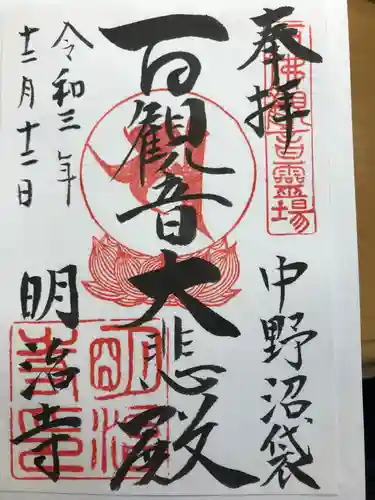 奉拝
百佛観音霊場
中野沼袋
百観音大悲殿
令和三年
十二月十二日
明治寺